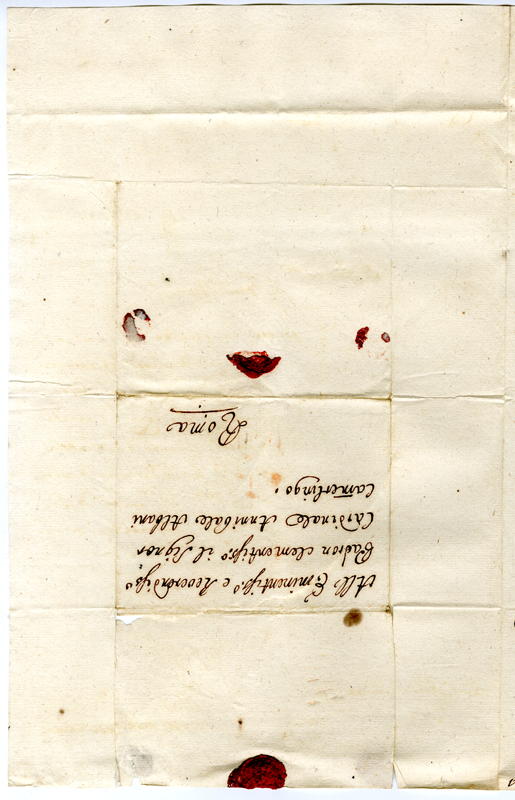 All' Eminentiss.º e Reverendiss.º
Padron clementiss.º il Signor
Cardinale Annibale Albani
Camerlingo.
Roma